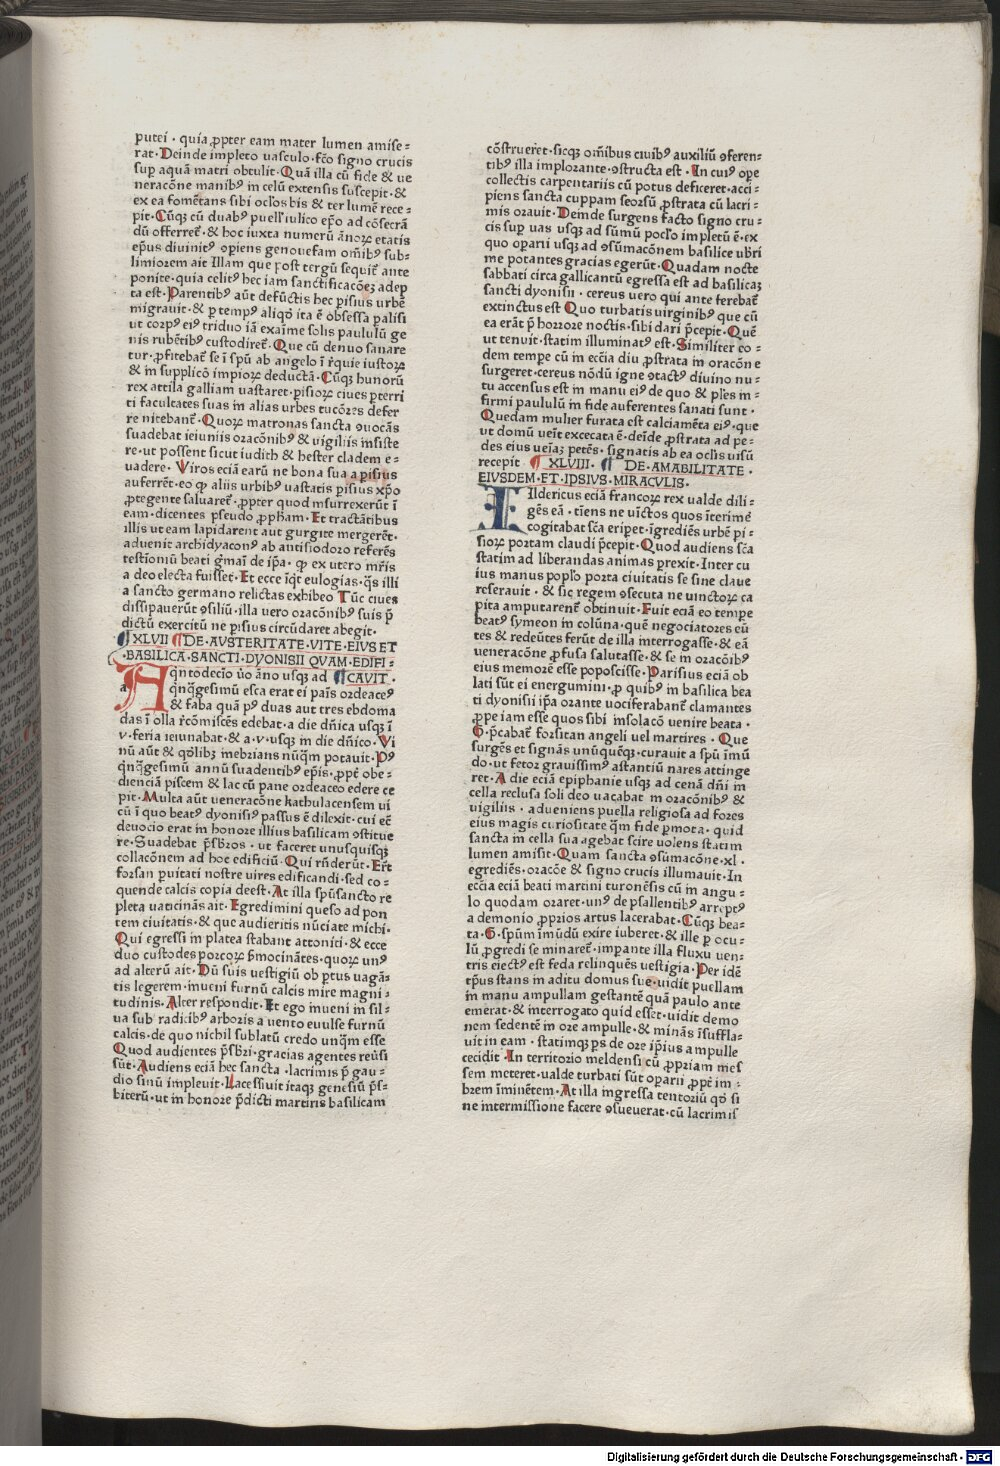 putei · quia ꝓpter eam mater lumen amise⸗
rat· Deinde impleto uasculo · fc̄o signo crucis
sup aquā matri obtulit · Quā illa cū fide & ue
neracōne manibꝰ in celū extensis suscepit · &
ex ea fomētans sibi oclos bis & ter lumē rece⸗
pit · Cūqꝫ cū duabꝰ puell' iulico ep̄o ad cōsecrā
dū offerret᷑ · & hoc iuxta numerū ānoꝝ etatis
ep̄us diuinitꝰ oꝑiens genouefam om̄ibꝰ sub⸗
limiorem ait Illam que post tergū sequit᷑ ante
ponite · quia celitꝰ hec iam sanctificacōeꝫ adep
ta est · Parentibꝰ aūt defūctis hec pisius urbē
migrauit · & ꝑ tempꝰ aliqđ ita ē obsessa palisi
ut corpꝰ eiꝰ triduo iā exaīme solis paululū ge
nis rubētibꝰ custodiret᷑ · Que cū denuo sanare
tur · ꝓfitebat᷑ se ī spū ab angelo ī r̄quie iustoꝝ
& in supplicō impioꝝ deductā · Cūqꝫ hunorū
rex attila galliam uastaret · pisioꝝ ciues ꝑterri
ti facultates suas in alias urbes tucōꝛes defer
re nitebant᷑ · Quoꝝ matronas sancta ꝯuocās
suadebat ieiuniis oracōnibꝰ & uigiliis insiste
re · ut possent sicut iudith & hester cladem e⸗
uadere · Viros eciā earū ne bona sua a pisius
auferrēt · eo ꝙ aliis urbibꝰ uastatis pisius xp̄o
ꝓtegente saluaret᷑ · ꝓpter quod insurrexerūt ī
eam · dicentes pseudo ꝓph̄am · Et tractātibus
illis ut eam lapidarent aut gurgite mergerēt·
aduenit archidyaconꝰ ab antisiodoro referēs
testīoniū beati g̃mani de ip̄a · ꝙ ex utero mr̄is
a deo electa fuisset · Et ecce īq̇t eulogias · q̄s illi
a sancto germano relictas exhibeo Tūc ciues
dissipauerūt ꝯsiliū · illa uero oracōnibꝰ suis p̄
dictū exercitū ne pisius circūdaret abegit ·
¶ XLVII ¶ DE · AVSTERITATE · VITE · EIVS ET
· BASILICA · SANCTI · DYONISII QVAM · EDIFI⸗
A q̇ntodecio ūo āno usqꝫ ad ¶ CAVIT ·
q̇nq̄gesimū esca erat ei pais ordeaceꝰ
& faba quā pꝰ duas aut tres ebdoma
das ī olla r̄comīscēs edebat · a die dn̄ica usqꝫ ī
v · feria ieiunabat · & a · v · usqꝫ in die dn̄ico · Vi
nū aūt & qđlibꝫ inebrians nūq̄m potauit · Pꝰ
q̇nq̄gesimū annū suadentibꝰ ep̄is · ꝓpt̄ obe⸗
dienciā piscem & lac cū pane ordeaceo edere ce
pit · Multa aūt ueneracōne kathulacensem ui
cū ī quo beatꝰ dyonisiꝰ passus ē dilexit · cui eē
deuocio erat in honore illius basilicam ꝯstitue
re · Suadebat p̄sb̄ros · ut faceret unusquisqꝫ
collacōnem ad hoc edificiū · Qui rn̄derūt · Er̄t
forsan ꝑuitati nostre uires edificandi · sed co⸗
quende calcis copia deest · At illa spū sancto re
pleta uaticinās ait · Egredimini queso ad pon
tem ciuitatis · & que audieritis nūciate michi ·
Qui egressi in platea stabant attoniti · & ecce
duo custodes porcoꝝ s̄mocinātes · quoꝝ unꝰ
ad alterū ait · Dū suis uestigiū ob ꝑtus uagā⸗
tis legerem · inueni furnū calcis mire magni⸗
tudinis · Alter respondit · Et ego inueni in sil⸗
ua sub radicibꝰ arboris a uento euulse furnū
calcis · de quo nichil sublatū credo unq̄m esse
Quod audientes p̄sb̄ri · gracias agentes reūsi
sūt · Audiens eciā hec sancta · lacrimis p̄ gau⸗
dio sinū impleuit · Lacessiuit itaqꝫ genesiū p̄s⸗
biterū · ut in honore p̄dicti martiris basilicam
cōstrueret · sicqꝫ om̄ibus ciuibꝰ auxiliū ꝯferen⸗
tibꝰ illa implorante · ꝯstructa est · In cuiꝰ oꝑe
collectis carpentariis cū potus deficeret · acci⸗
piens sancta cuppam seorsū ꝓstrata cū lacri⸗
mis orauit · Deinde surgens facto signo cru⸗
cis sup uas usqꝫ ad sūmū poclo impletū ē · ex
quo oꝑarii usqꝫ ad ꝯsūmacōnem basilice ubri
me potantes gracias egerūt · Quadam nocte
sabbati circa gallicantū egressa est ad basilicaꝫ
sancti dyonisii · cereus uero qui ante ferebat᷑
extinctus est Quo turbatis uirginibꝰ que cū
ea erāt p̄ horrore noctis · sibi dari p̄cepit · Quē
ut tenuit · statim illuminatꝰ est · Similiter eo⸗
dem tempe cū in ecc̄ia diu ꝓstrata in oracōne
surgeret · cereus nōdū igne ꝯtactꝰ diuino nu⸗
tu accensus est in manu eiꝰ de quo & pl'es in⸗
firmi paululū in fide auferentes sanati sunt ·
Quedam mulier furata est calciamēta eiꝰ · que
ut domū ueīt excecata ē · deīde ꝓstrata ad pe⸗
des eius ueīaꝫ petēs · signatis ab ea oclis uisū
recepit ¶ XLVIII · ¶ DE · AMABILITATE ·
EIVSDEM · ET · IPSIVS · MIRACVLIS ·
Ildericus eciā francoꝝ rex ualde dili⸗
gēs eā · tīens ne uīctos quos īterimē
cogitabat sc̄a eriꝑet · īgrediēs urbē pi⸗
sioꝝ portam claudi p̄cepit · Quod audiens sc̄a
statim ad liberandas animas ꝑrexit · Inter cu
ius manus poplo porta ciuitatis se sine claue
reserauit · & sic̨ regem ꝯsecuta ne uinctoꝝ ca
pita amputarent᷑ obtinuit · Fuit eciā eo tempe
beatꝰ symeon in colūna · quē negociatores eū
tes & redeūtes ferūt de illa interrogasse · & eā
ueneracōne ꝓfusa salutasse · & se in oracōibꝰ
eius memorē esse poposcisse · Parisius eciā ob
lati sūt ei energumini · ꝓ quibꝰ in basilica bea
ti dyonisii ip̄a orante uociferabant᷑ clamantes
ꝓpe iam esse quos sibi insolacō uenire beata ·
G · p̄cabat᷑ forsitan angeli uel martires · Que
surgēs et signās unūquēqꝫ · curauit a spū īmū
do · ut fetor grauissimꝰ astantiū nares attinge
ret · A die eciā epiphanie usqꝫ ad cenā dn̄i in
cella reclusa soli deo uacabat in oracōnibꝰ &
uigiliis · adueniens puella religiosa ad fores
eius magis curiositate q̄m fide ꝑmota · quid
sancta in cella sua agebat scire uolens statim
lumen amisit · Quam sancta ꝯsūmacōne · xl ·
egrediēs · oracōe & signo crucis illumauit · In
ecc̄ia eciā beati martini turonēsis cū in angu⸗
lo quodam oraret · unꝰ de psallentibꝰ arreptꝰ
a demonio ꝓprios artus lacerabat · Cūqꝫ bea⸗
ta · G · spūm īmūdū exire iuberet · & ille ꝑ ocu⸗
lū ꝓgredi se minaret᷑ · impante illa fluxu uen⸗
tris eiectꝰ est feda relinquēs uestigia · Per idē
tp̄us stans in aditu domus sue · uidit puellam
in manu ampullam gestantē quā paulo ante
emerat · & interrogato quid esset · uidit demo
nem sedentē in ore ampulle · & minās īsuffla⸗
uit in eam · statimqꝫ ps de ore ip̄ius ampulle
cecidit · In territorio meldensi cū ꝓpriam mes
sem meteret · ualde turbati sūt oꝑarii ꝓpt̄ im⸗
brem īminētem · At illa ingressa tentoriū qđ si
ne intermissione facere ꝯsueuerat · cū lacrimis
Digitalisierung gefördert durch die Deutsche Forschungsgemeinschaft · DFG